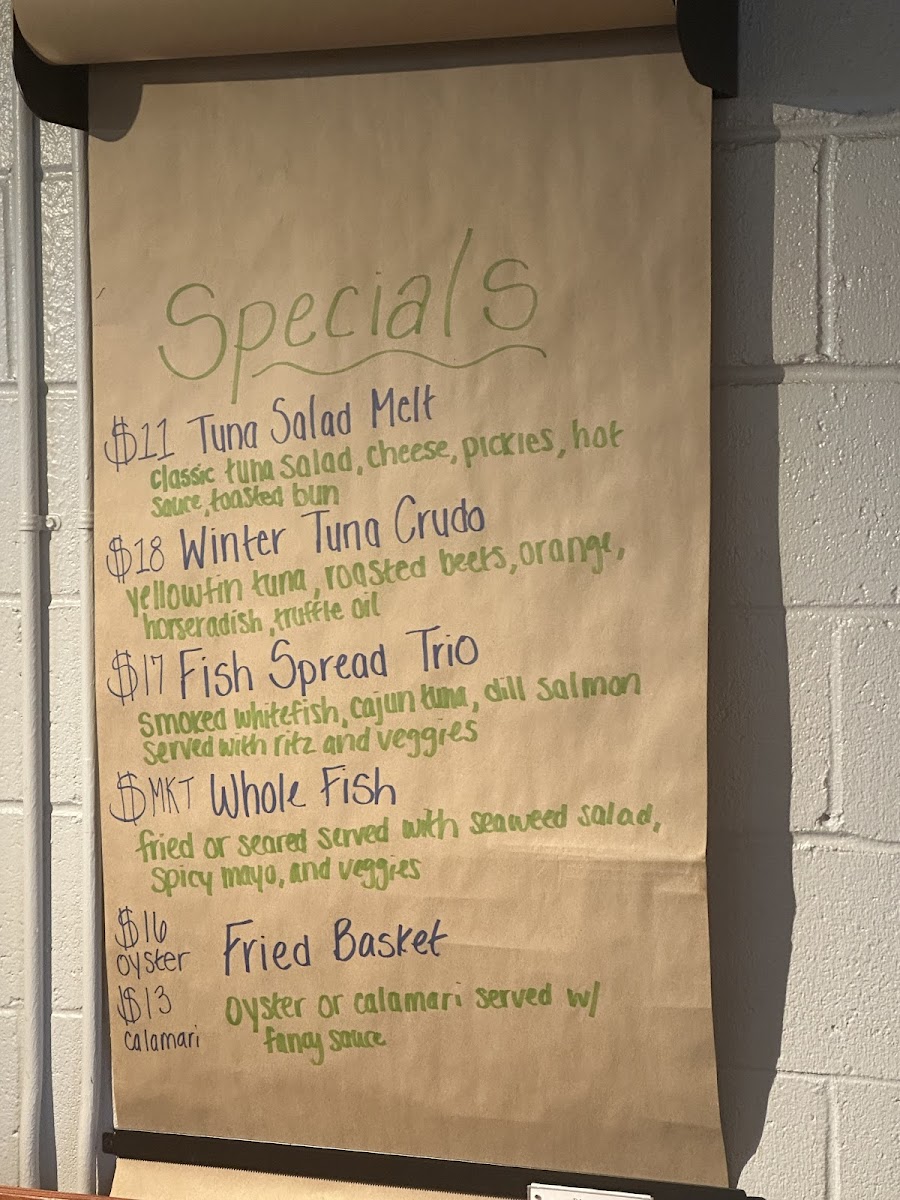 Specials
$11 Tuna Salad Melt
classic tuna salad, cheese, pickles, hot
sauce, toasted bun
$18 Winter Tuna Crudo
yellowfin tuna, roasted beets, orange,
horseradish, truffle oil
$17 Fish Spread Trio
smoked whitefish, cajun tuna, dill salmon
served with ritz and veggies
$MKT Whole Fish
fried or seared served with seaweed salad,
spicy mayo, and veggies
$16
oyster
Fried Basket
$13
calamari
oyster or calamari served w/
fancy sauce